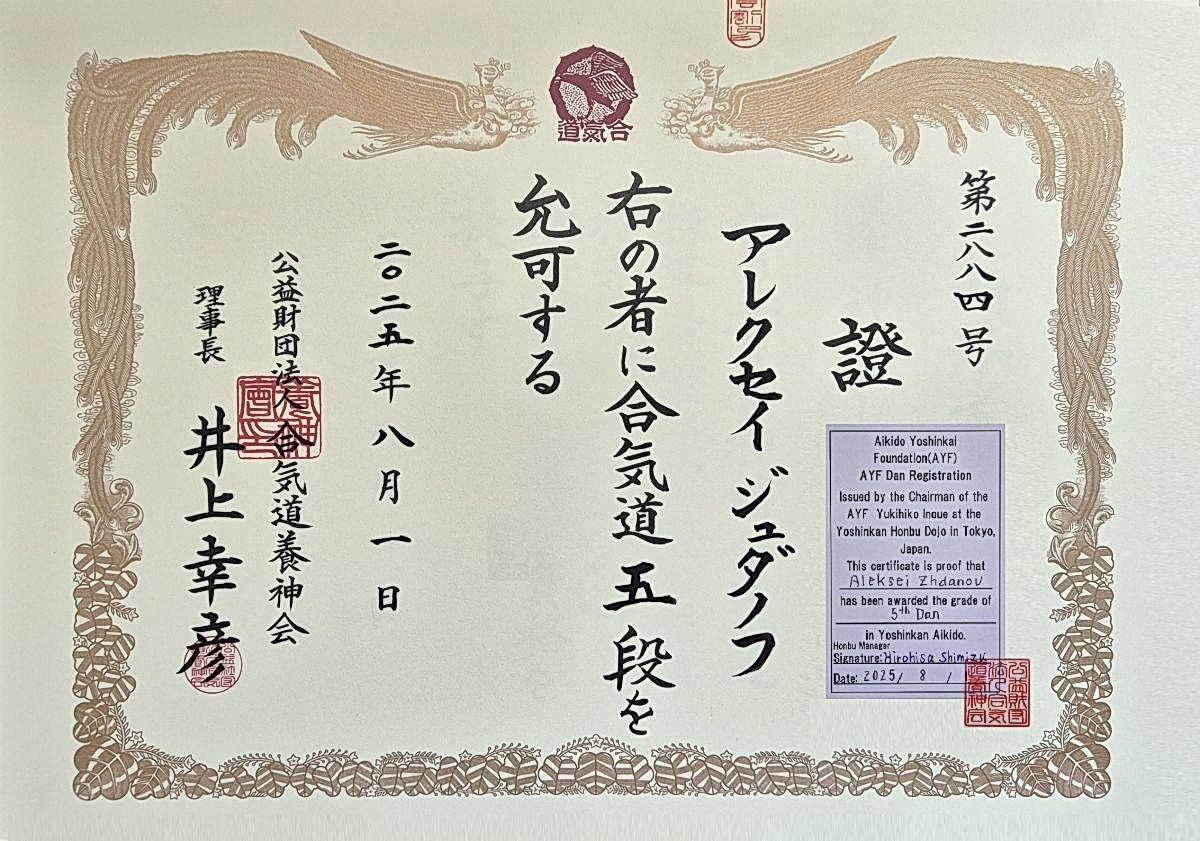 合氣道
第二八八四号
證
アレクセイ ジュダノフ
右の者に合気道五段を
允可する
二〇二五年八月一日
公益財団法人合気道養神会
理事長 井上幸彦
Aikido Yoshinkai
Foundation(AYF)
AYF Dan Registration
Issued by the Chairman of the
AYF Yukihiko Inoue at the
Yoshinkan Honbu Dojo in Tokyo,
Japan.
This certificate is proof that
Aleksei Zhdanov
has been awarded the grade of
5th Dan
in Yoshinkan Aikido.
Honbu Manager
Signature: Hirohisa Shimizu
Date: 2025/ 8 /
公益財団
法人合気
道養神会